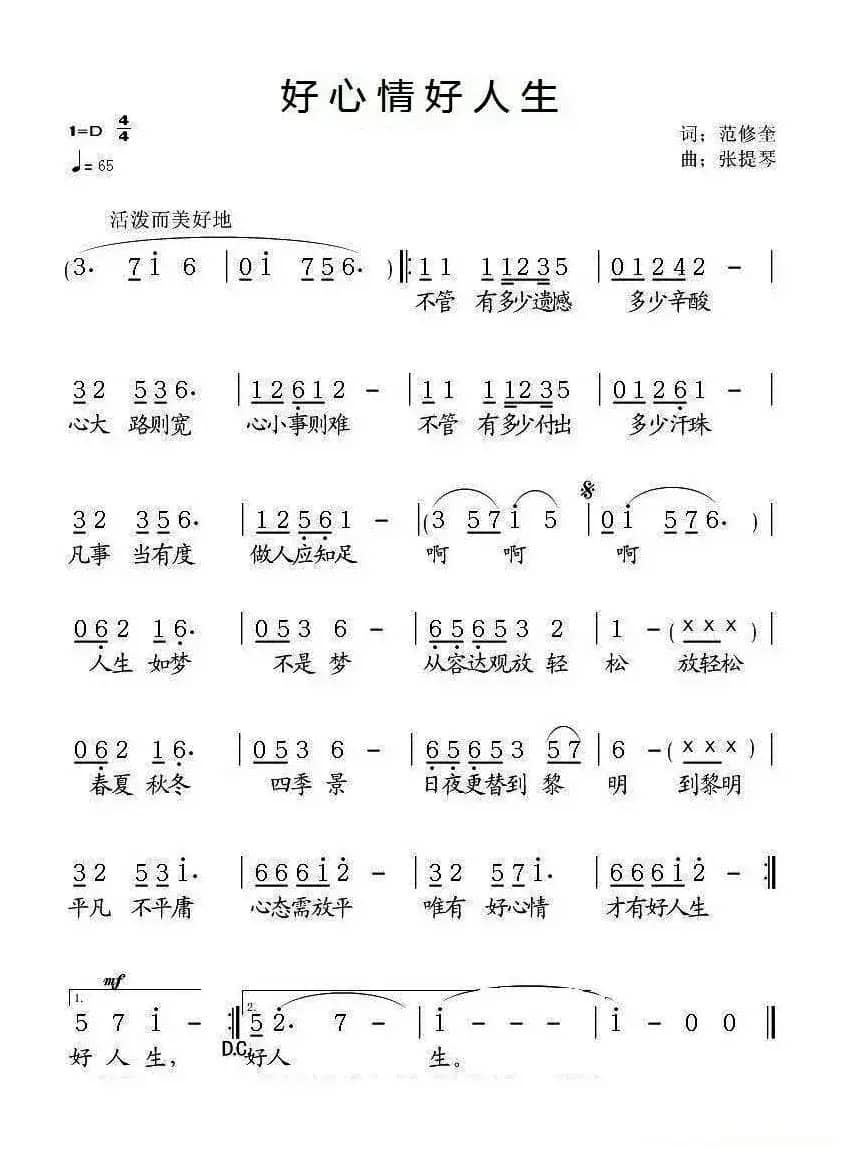 好心情好人生
1=D 4/4
♩= 65
词：范修奎
曲：张提琴
活泼而美好地
(3. 7i 6 | 0i 756. )‖: 11 11235 | 01242 - |
不管 有多少遗憾 多少辛酸
32 536. | 12612 - | 11 11235 | 01261 - |
心大 路则宽 心小事则难 不管 有多少付出 多少汗珠
32 356. | 12561 - | (3 57i 5 | 0i 576. ) |
凡事 当有度 做人应知足 啊 啊 啊
062 16. | 053 6 - | 65653 2 | 1 - (x x x) |
人生 如梦 不是 梦 从容达观放 轻 松 放轻松
062 16. | 053 6 - | 65653 57 | 6 - (x x x) |
春夏 秋冬 四季 景 日夜更替到 黎 明 到黎明
32 53i. | 666i2 - | 32 57i. | 666i2 - :‖
平凡 不平庸 心态需放平 唯有 好心情 才有好人生
mf
1. 2.
5 7 i - :‖ 52. 7 - | i - - - | i - 0 0 ‖
D.C.
好 人 生， 好人 生。